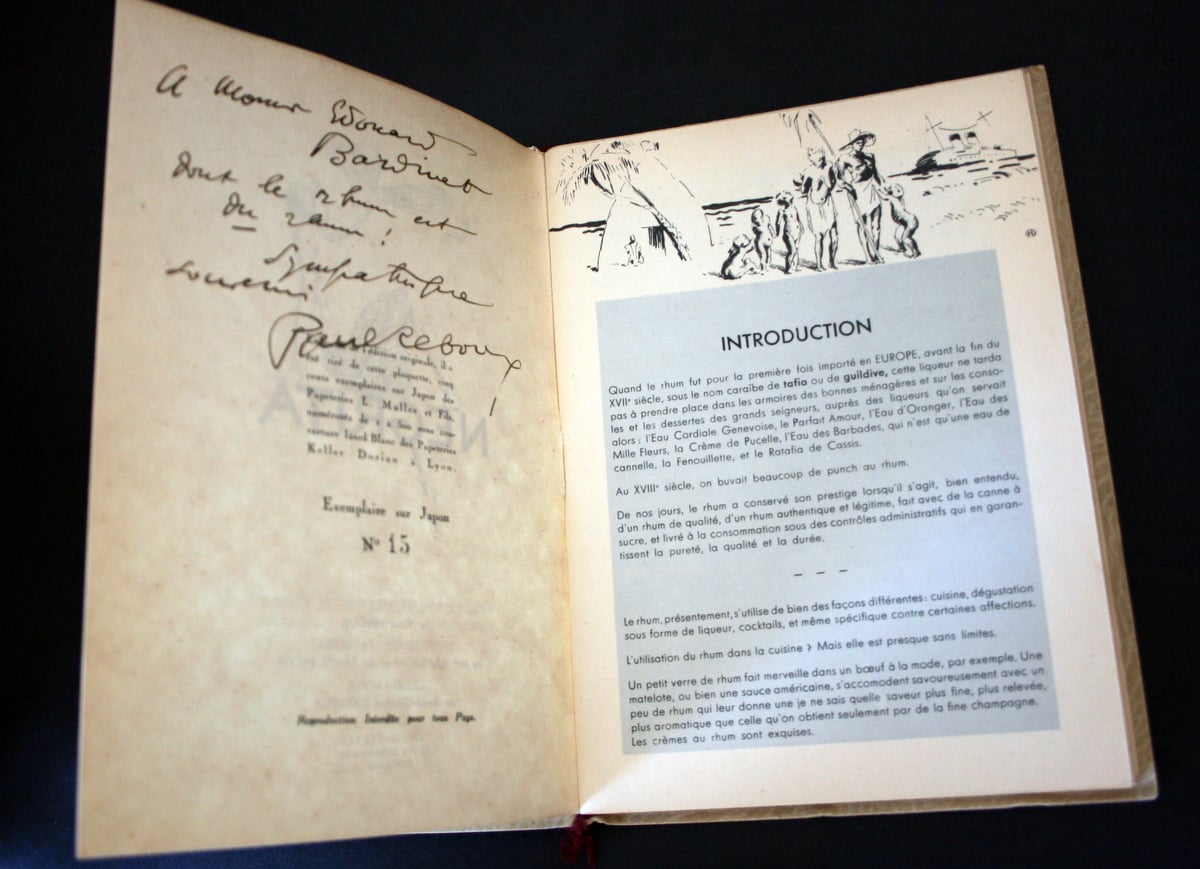 A Monsieur Edouard
Bardinet
dont le rhum est
du rhum !
Sympathique
souvenir
Paul Reboux
l'édition originale, il a
été tiré de cette plaquette, cinq
cents exemplaires sur Japon des
Papeteries L. Muller et Fils,
numérotés de 1 à 500 sous cou-
verture Izard Blanc des Papeteries
Keller Dorian à Lyon.
Exemplaire sur Japon
N° 15
Reproduction Interdite pour tous Pays.
INTRODUCTION
Quand le rhum fut pour la première fois importé en EUROPE, avant la fin du
XVIIe siècle, sous le nom caraïbe de tafia ou de guildive, cette liqueur ne tarda
pas à prendre place dans les armoires des bonnes ménagères et sur les conso-
les et les dessertes des grands seigneurs, auprès des liqueurs qu'on servait
alors : l'Eau Cordiale Genevoise, le Parfait Amour, l'Eau d'Oranger, l'Eau des
Mille Fleurs, la Crème de Pucelle, l'Eau des Barbades, qui n'est qu'une eau de
cannelle, la Fenouillette, et le Ratafia de Cassis.
Au XVIIIe siècle, on buvait beaucoup de punch au rhum.
De nos jours, le rhum a conservé son prestige lorsqu'il s'agit, bien entendu,
d'un rhum de qualité, d'un rhum authentique et légitime, fait avec de la canne à
sucre, et livré à la consommation sous des contrôles administratifs qui en garan-
tissent la pureté, la qualité et la durée.
– – –
Le rhum, présentement, s'utilise de bien des façons différentes : cuisine, dégustation
sous forme de liqueur, cocktails, et même spécifique contre certaines affections.
L'utilisation du rhum dans la cuisine ? Mais elle est presque sans limites.
Un petit verre de rhum fait merveille dans un bœuf à la mode, par exemple. Une
matelote, ou bien une sauce américaine, s'accomodent savoureusement avec un
peu de rhum qui leur donne une je ne sais quelle saveur plus fine, plus relevée,
plus aromatique que celle qu'on obtient seulement par de la fine champagne.
Les crèmes au rhum sont exquises.